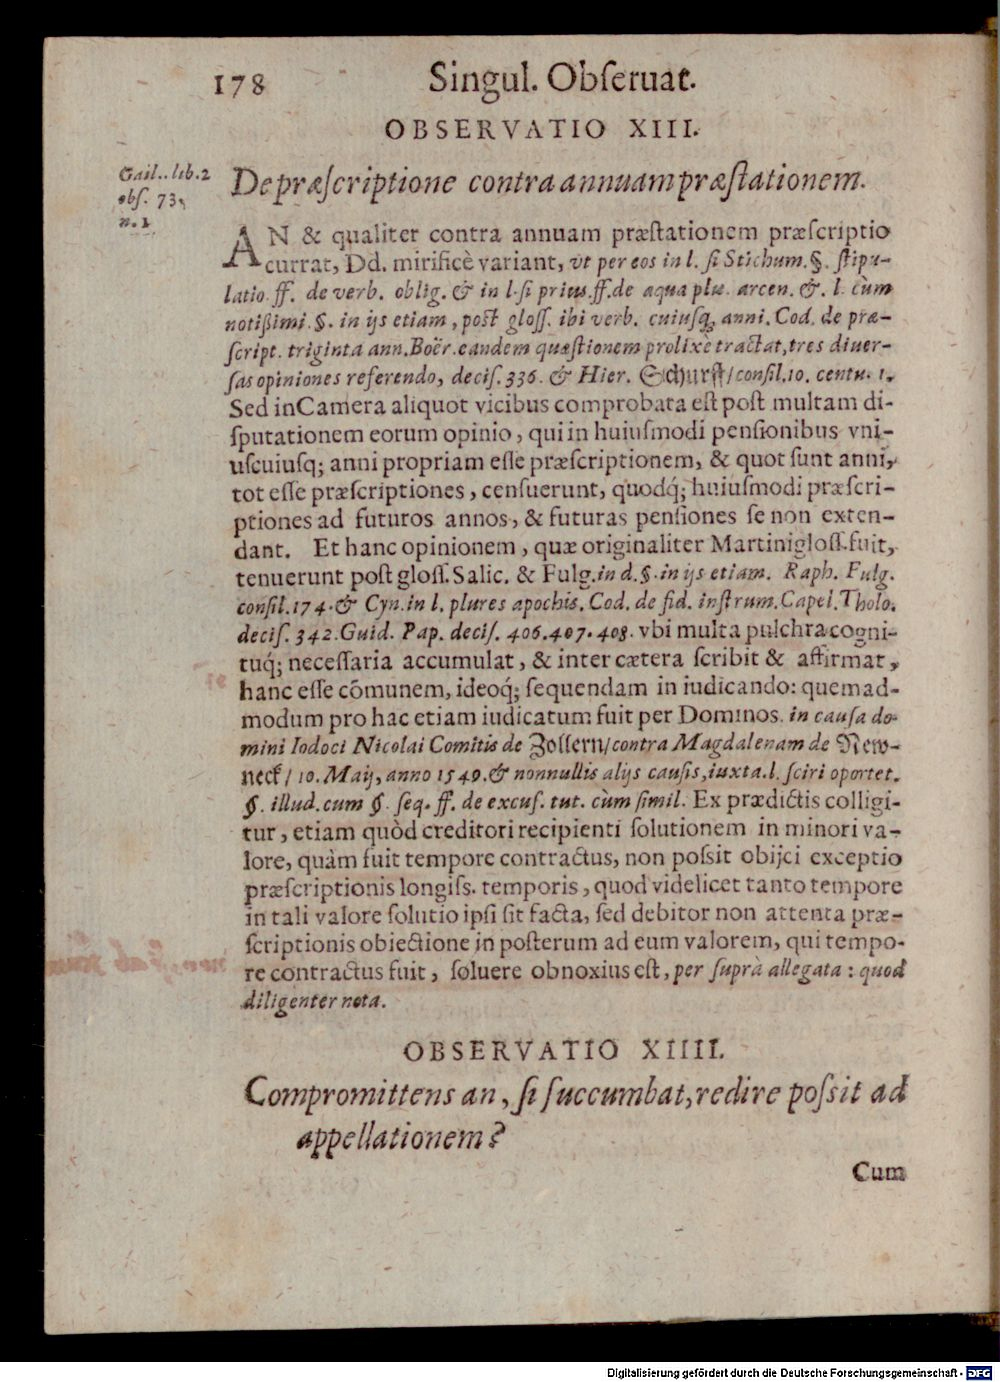 178 Singul. Obſeruat.
OBSERVATIO XIII.
Gail.. lib. 2
obſ. 73.
n. 1
De præſcriptione contra annuam præſtationem.
AN & qualiter contra annuam præſtationem præſcriptio
currat, Dd. mirificè variant, vt per eos in l. ſi Stichum. §. ſtipu-
latio. ff. de verb. oblig. & in l. ſi prius. ff. de aqua plu. arcen. &. l. cùm
notißimi. §. in ijs etiam, poſt gloſſ. ibi verb. cuiusq; anni. Cod. de præ-
ſcript. triginta ann. Boër. eandem quæſtionem prolixè tractat, tres diuer-
ſas opiniones referendo, deciſ. 336. & Hier. Schurff/ conſil. 10. centu. 1.
Sed in Camera aliquot vicibus comprobata eſt poſt multam di-
ſputationem eorum opinio, qui in huiuſmodi penſionibus vni-
uſcuiuſq; anni propriam eſſe præſcriptionem, & quot ſunt anni,
tot eſſe præſcriptiones, cenſuerunt, quodq́; huiuſmodi præſcri-
ptiones ad futuros annos, & futuras penſiones ſe non exten-
dant. Et hanc opinionem, quæ originaliter Martini gloſſ. fuit,
tenuerunt poſt gloſſ. Salic. & Fulg. in d. §. in ijs etiam. Raph. Fulg.
conſil. 174. & Cyn. in l. plures apochis. Cod. de fid. inſtrum. Capel. Tholo.
deciſ. 342. Guid. Pap. deciſ. 406. 407. 408. vbi multa pulchra cogni-
tuq́; neceſſaria accumulat, & inter cætera ſcribit & affirmat,
hanc eſſe cōmunem, ideoq́; ſequendam in iudicando: quemad-
modum pro hac etiam iudicatum fuit per Dominos. in cauſa do-
mini Iodoci Nicolai Comitis de Zollern/ contra Magdalenam de New-
neck/ 10. Maij, anno 1549. & nonnullis alijs cauſis, iuxta. l. ſciri oportet.
§. illud. cum §. ſeq. ff. de excuſ. tut. cùm ſimil. Ex prædictis colligi-
tur, etiam quòd creditori recipienti ſolutionem in minori va-
lore, quàm fuit tempore contractus, non poſsit obijci exceptio
præſcriptionis longiſs. temporis, quod videlicet tanto tempore
in tali valore ſolutio ipſi ſit facta, ſed debitor non attenta præ-
ſcriptionis obiectione in poſterum ad eum valorem, qui tempo-
re contractus fuit, ſoluere obnoxius eſt, per ſuprà allegata: quod
diligenter nota.
OBSERVATIO XIIII.
Compromittens an, ſi ſuccumbat, redire poſsit ad
appellationem?
Cum
Digitalisierung gefördert durch die Deutsche Forschungsgemeinschaft - DFG